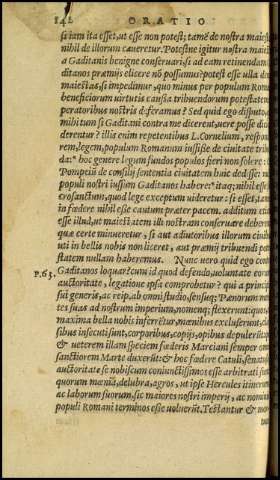 842 ORATIO
si iam ita esset, ut esse non potest; tamẽ de nostra maiest
nihil de illorum caueretur. Potestne igitur nostra maiest
a Gaditanis benigne conseruari, si ad eam retinendam
ditanos præmijs elicere nõ possumus? potest esse ulla de
maiestas, si impedimur, quo minus per populum Romanum
beneficiorum uirtutis causa tribuendorum potestatem
peratoribus nostris deferamus? Sed quid ego disputo,
mihi tum si Gaditani contra me dicerent, uere posse dici
derentur? illis enim repetentibus L. Cornelium, respon
rem, legem, populum Romanum iussisse de ciuitate tribu
da: hoc genere legum fundos populos fieri non solere:
Pompeiũ de consilij sententia ciuitatem huic dedisse: n
populi nostri iussum Gaditanos habere: itaq; nihil esse
crosanctum, quod lege exceptum uideretur: si esset, tam
in fœdere nihil esse cautum præter pacem. additum etiã
esse illud, ut maiestatem illi nostram conseruare deberen
quæ certe minueretur, si aut adiutoribus illorum ciuib
uti in bellis nobis non liceret, aut præmij tribuendi po
statem nullam haberemus. Nunc uero quid ego cont
P. 63. Gaditanos loquar: cum id quod defendo, uoluntate eorum
auctoritate, legatione ipsa comprobetur? qui a princip
sui generis, ac reip. ab omni studio, sensuq; Pœnorum men
tes suas ad nostrum imperium, nomenq; flexerunt: qui
maxima bella nobis inferretur, mœnibus excluserunt, clas
sibus insecuti sunt, corporibus, copijs, opibus depulerũt
& ueterem illam speciem fœderis Marciani semper omni
sanctiorem Marte duxerũt: & hoc fœdere Catuli, senatusq;
auctoritate se nobiscum coniunctissimos esse arbitrati sunt
quorum mœnia, delubra, agros, ut ipse Hercules itinerum
ac laborum suorum, sic maiores nostri imperij, ac nominis
populi Romani terminos esse uoluerũt. Testantur & mor